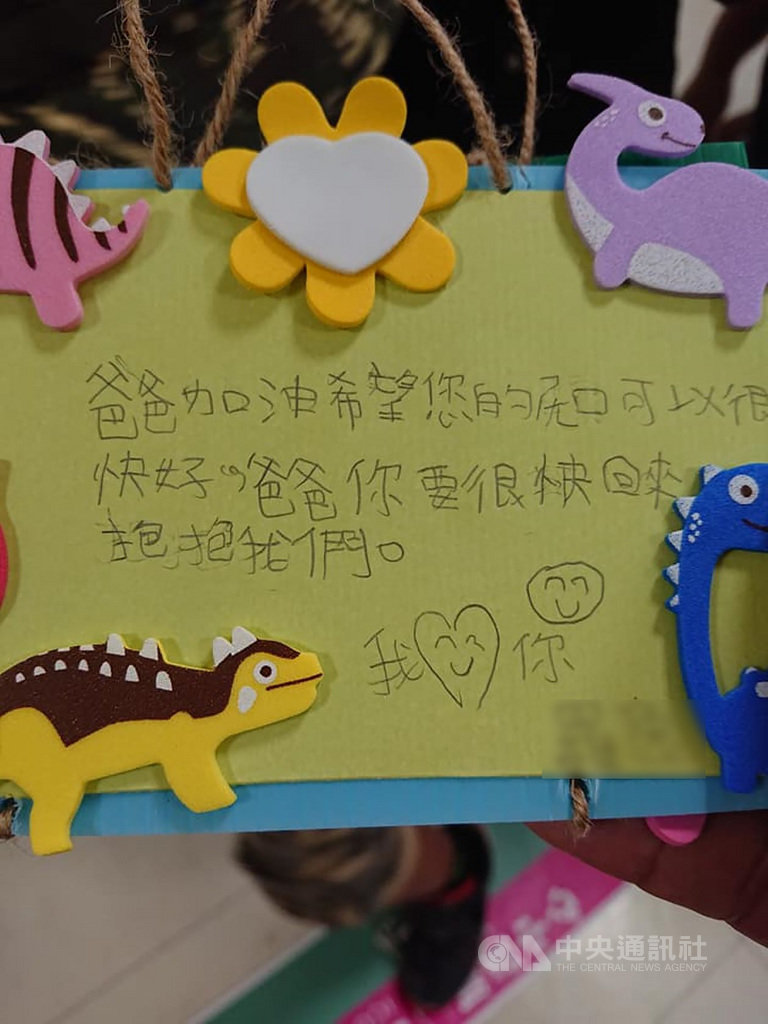 爸爸加油希望您的尻口可以很
快好,爸爸你要很快回來
抱抱我們。
我 你
CNA 中央通訊社
THE CENTRAL NEWS AGENCY